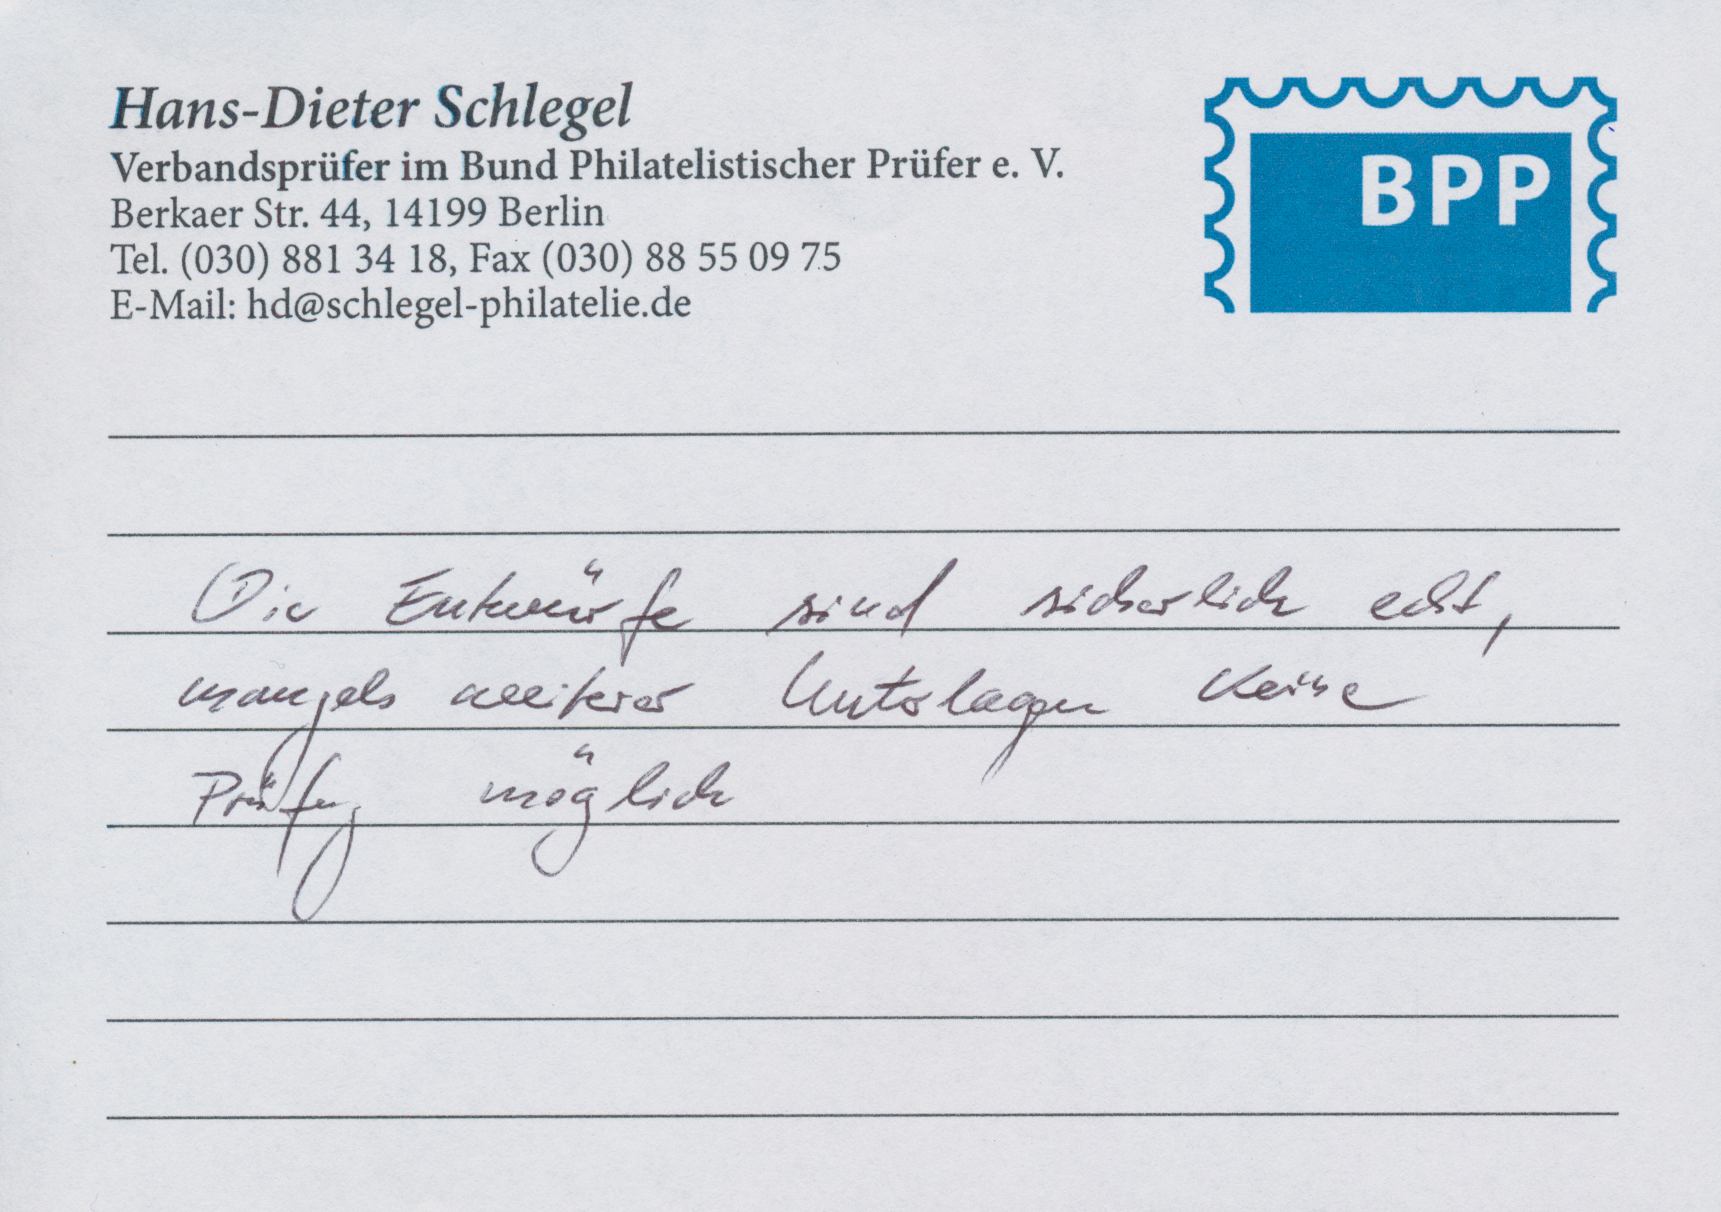 Hans-Dieter Schlegel
Verbandsprüfer im Bund Philatelistischer Prüfer e. V.
Berkaer Str. 44, 14199 Berlin
Tel. (030) 881 34 18, Fax (030) 88 55 09 75
E-Mail: hd@schlegel-philatelie.de
BPP
Die Entwürfe sind sicherlich echt,
mangels weiterer Unterlagen keine
Prüfung möglich